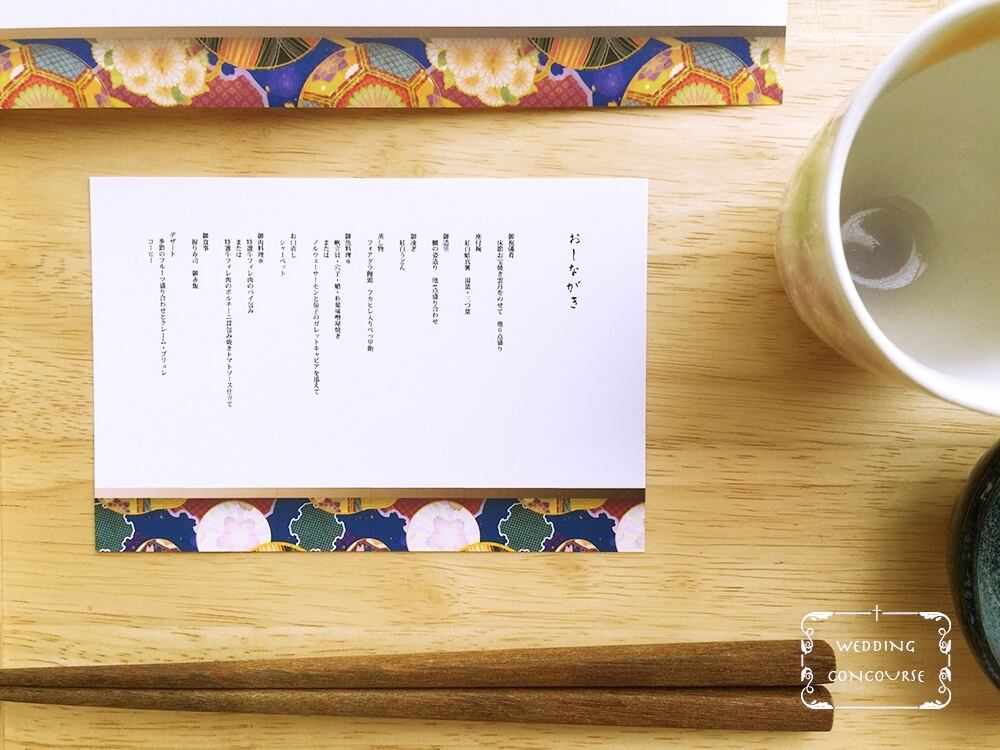 おしながき
御祝儀肴
床節お宝焼き雲丹をのせて　他６点盛り
座付椀
紅白蛤真薯　湯葉・三つ葉
御造里
鯛の姿造り　他点盛り合わせ
御凌ぎ
紅白うどん
蒸し物
フォアグラ饅頭　フカヒレ入りべっ甲餡
御魚料理※
帆立貝・穴子・蛤・朴葉味噌掛焼き
または
ノルウェーサーモンと茄子のガレットキャビアを添えて
お口直し
シャーベット
御肉料理※
特選牛フィレ肉のパイ包み
または
特選牛フィレ肉のポルチーニ茸包み焼きトマトソース仕立て
御食事
握り寿司　御赤飯
デザート
季節のフルーツ盛り合わせとクレーム・ブリュレ
コーヒー
WEDDING
CONCOURSE